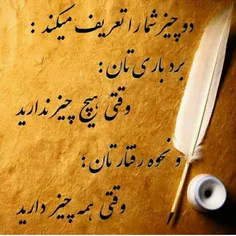 دو چیز شما را تعریف میکند :
بردباری تان :
وقتی هیچ چیز ندارید
و نحوه رفتار تان :
وقتی همه چیز دارید